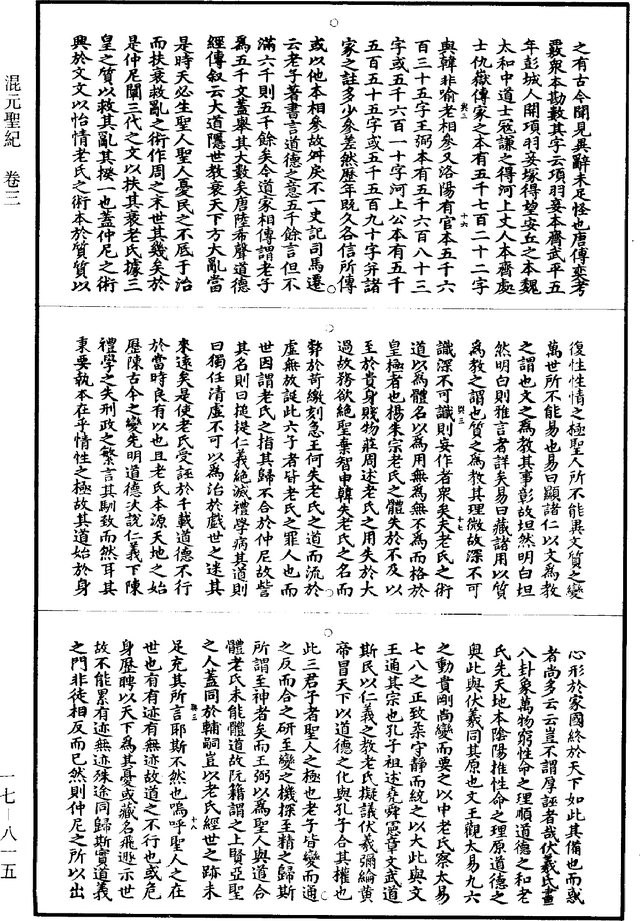 混元聖紀　卷三
一七—八一五
之有古今聞見異辭未足恠也唐傳奕考
覈衆本勘數其字云項羽妾本齊武平五
年彭城人開項羽妾塚得望安丘之本魏
太和中道士寇謙之得河上丈人本齊處
士仇嶽傳家之本有五千七百二十二字
與韓非喻老相參又洛陽有官本五千六
百三十五字王弼本有五千六百八十三
字或五千六百一十字河上公本有五千
五百五十五字或五千五百九十字并諸
家之註多少參差然歷年既久各信所傳
或以他本相參故舛戾不一史記司馬遷
云老子著書言道德之意五千餘言但不
滿六千則五千餘矣今道家相傳謂老子
爲五千文蓋舉其大數矣唐陸希聲道德
經傳叙云大道隱世教衰天下方大亂當
是時天必生聖人聖人憂民之不厎于治
而扶衰救亂之術作周之末世其幾矣於
是仲尼闡三代之文以扶其衰老氏據三
皇之質以救其亂其揆一也蓋仲尼之術
興於文文以怡情老氏之術本於質質以
復性性情之極聖人所不能異文質之變
萬世所不能易也易曰顯諸仁以文爲教
之謂也文之爲教其事彰故坦然明白坦
然明白則雅言者詳矣易曰藏諸用以質
爲教之謂也質之爲教其理微故深不可
識深不可識則妄作者衆矣夫老氏之術
道以爲體名以爲用無爲無不爲而格於
皇極者也楊朱宗老氏之體失於不及以
至於貴身賤物莊周述老氏之用失於大
過故務欲絕聖棄智申韓失老氏之名而
弊於苛繳刻急王何失老氏之道而流於
虛無放誕此六子者皆老氏之罪人也而
世因謂老氏之指其歸不合於仲尼故訾
其名則曰搥提仁義絕滅禮學病其道則
曰獨任清虛不可以爲治於戲世之迷其
來遠矣是使老氏受誣於千載道德不行
於當時良有以也且老氏本源天地之始
歷陳古今之變先明道德次說仁義下陳
禮學之失刑政之繁言其馴致而然耳其
秉要執本在乎情性之極故其道始於身
心形於家國終於天下如此其備也而惑
者尚多云云豈不謂厚誣者哉伏羲氏畫
八卦象萬物窮性命之理順道德之和老
氏先天地本陰陽推性命之理原道德之
奥此與伏羲同其原也文王觀太易九六
之動貴剛尚變而要之以中老氏察太易
七八之正致柔守靜而統之以大此與文
王通其宗也孔子祖述堯舜憲章文武道
斯民以仁義之教老氏擬議伏羲彌綸黄
帝冒天下以道德之化與孔子合其權也
此三君子者聖人之極也老子皆變而通
之反而合之研至變之機探至精之歸斯
所謂至神者矣而王弼以爲聖人與道合
體老氏未能體道故阮籍謂之上賢亞聖
之人蓋同於輔嗣豈以老氏經世之跡未
足充其所言耶斯不然也嗚呼聖人之在
世也有有迹有無迹故道之不行也或危
身歷聘以天下爲其憂或藏名飛遯示世
故不能累有迹無迹殊途同歸斯實道義
之門非徒相反而已然則仲尼之所以出